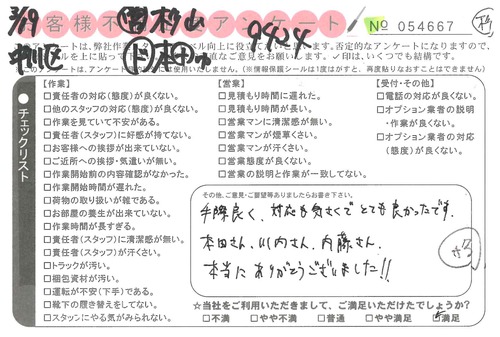 3/19 杉山 9424
お客様不満足アンケート
№ 054667
中川区
アンケートは、弊社作業
向上に役立て
否定的なアンケートになりますので、
ルを上に貼って下
直なご意見をお願いします。✓印は、いくつでも結構です。
このアンケートは、アンケート
には使用いたしません。(※情報保護シールは1度はがすと、再度貼りなおすことはできません)
チェックリスト
【作業】
□責任者の対応(態度)が良くない。
□他のスタッフの対応(態度)が良くない。
□作業を見ていて不安がある。
□責任者(スタッフ)に好感が持てない。
□お客様への挨拶が出来ていない。
□ご近所への挨拶・気遣いが無い。
□作業開始前の内容確認がなかった。
□作業開始時間が遅れた。
□荷物の取り扱いが雑である。
□お部屋の養生が出来ていない。
□作業時間が長すぎる。
□責任者(スタッフ)に清潔感が無い。
□責任者(スタッフ)が汗くさい。
□トラックが汚い。
□梱包資材が汚い。
□運転が不安(下手)である。
□靴下の履き替えをしてない。
□スタッフにやる気がみられない。
【営業】
□見積もり時間に遅れた。
□見積もり時間が長い。
□営業マンに清潔感が無い。
□営業マンが煙草くさい。
□営業マンが汗くさい。
□営業態度が良くない。
□営業の説明と作業が一致してない。
【受付・その他】
□電話の対応が良くない。
□オプション業者の説明
・作業が良くない。
□オプション業者の対応
(態度)が良くない。
その他、ご意見・ご要望等ありましたらお書き下さい。
手際良く、対応も気さくでとても良かったです。
本田さん、川内さん、内藤さん、
本当にありがとうございました!!
☆当社をご利用いただきまして、ご満足いただけたでしょうか?
□不満 □やや不満 □普通 □やや満足 ☑満足